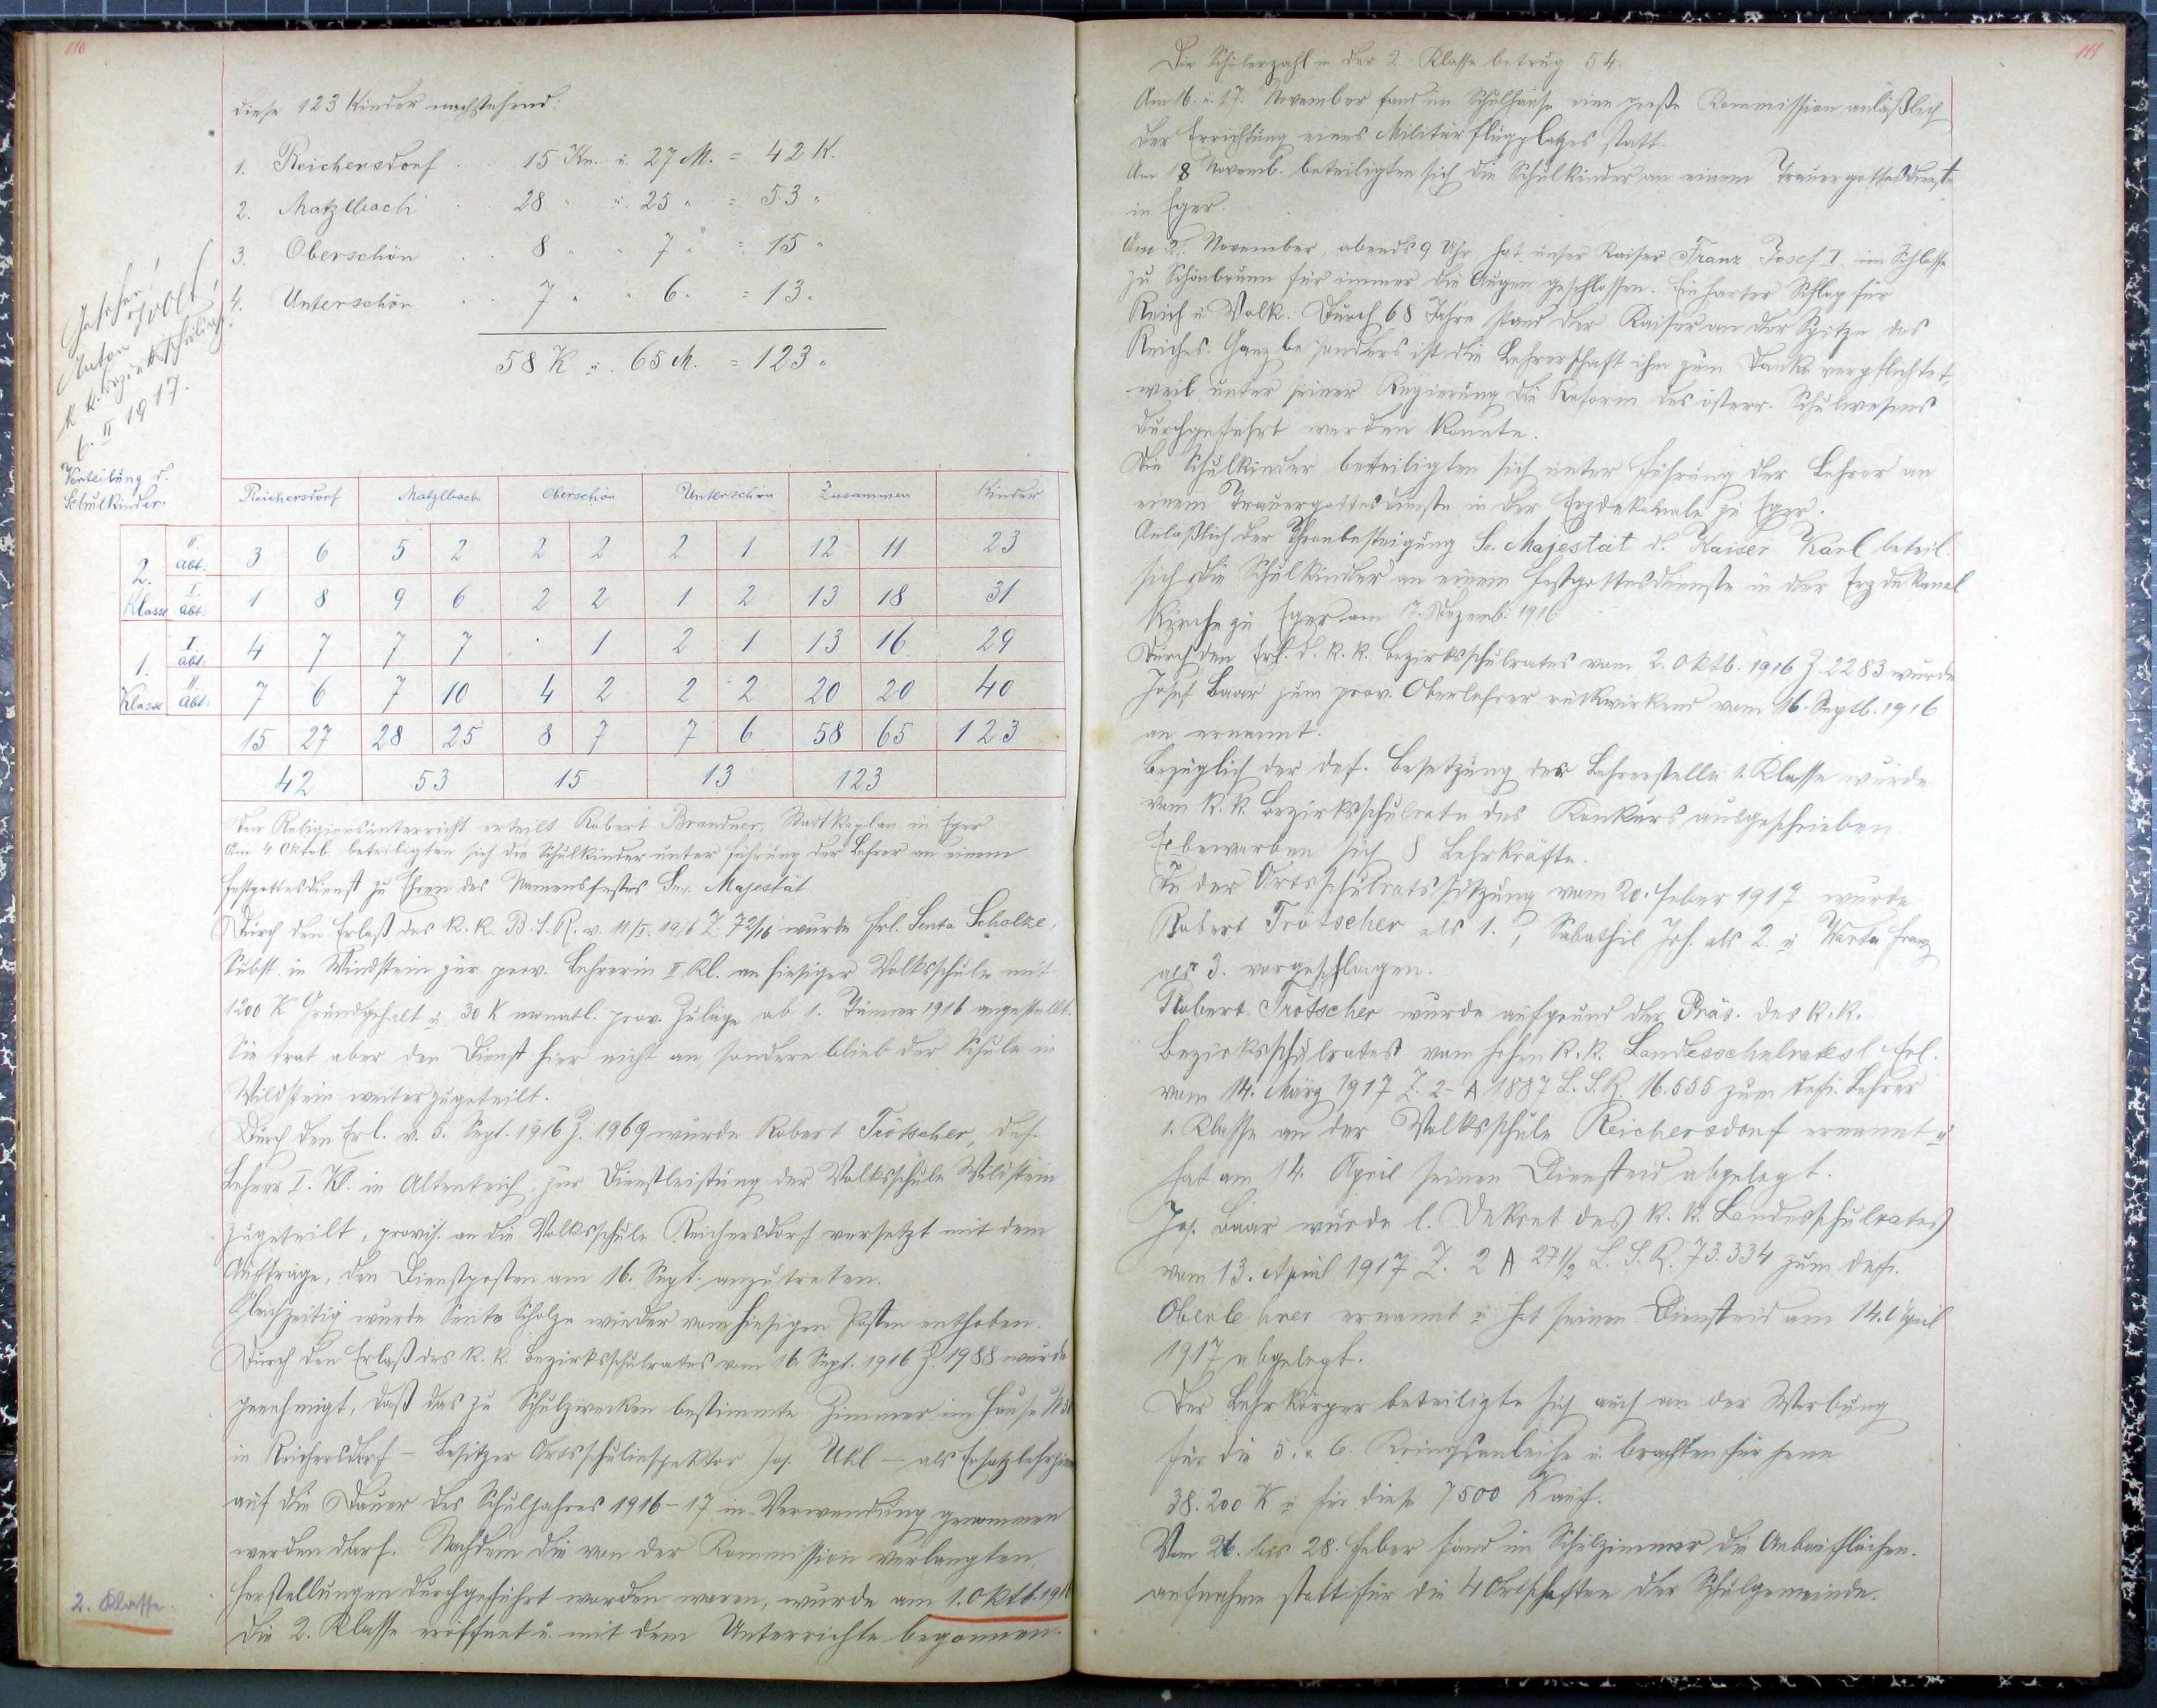 110
diese 123 Kinder nachstehend:
1. Reichersdorf . . 15 Kn. u. 27 M. = 42 K.
2. Matzlbach . . 28 " u. 25 " = 53 "
3. Oberschön . . 8 " " 7 " = 15 "
4. Unterschön . . 7 " " 6 " = 13 "
58 K u. 65 M. = 123 "
Gesehen!
Anton
k. k. Bezirksschulinsp.
6. II 1917.
Verteilung d.
Schulkinder:
Reichersdorf Matzlbach Oberschön Unterschön Zusammen Kinder
2. Klasse II. Abt: 3 6 5 2 2 2 2 1 12 11 23
I. Abt: 1 8 9 6 2 2 1 2 13 18 31
1. Klasse I. Abt: 4 7 7 7 · 1 2 1 13 16 29
II. Abt: 7 6 7 10 4 2 2 2 20 20 40
15 27 28 25 8 7 7 6 58 65 123
42 53 15 13 123
Den Religionsunterricht erteilt Robert Brandner, Stadtkaplan in Eger
Am 4 Oktob. beteiligten sich die Schulkinder unter Führung der Lehrer an einem
Festgottesdienst zu Ehren des Namensfestes Sr. Majestät
Durch den Erlaß des k. k. B. S. R. v. 11/I. 1916 Z. 72/16 wurde Frl. Senta Scholze,
Subst. in Wildstein zur prov. Lehrerin II Kl. an hiesiger Volksschule mit
1200 K Grundgehalt u. 30 K monatl. prov. Zulage ab 1. Jänner 1916 angestellt.
Sie trat aber den Dienst hier nicht an, sondern blieb der Schule in
Wildstein weiter zugeteilt.
Durch den Erl. v. 5. Sept. 1916 Z. 1969 wurde Robert Trötscher, def.
Lehrer I. Kl. in Altenteich, zur Dienstleistung der Volksschule Wildstein
zugeteilt, provis. an die Volksschule Reichersdorf versetzt mit dem
Auftrage, den Dienstposten am 16. Sept. anzutreten.
Gleichzeitig wurde Senta Scholze wieder vom hiesigen Posten enthoben.
Durch den Erlaß des k. k. Bezirksschulrates vom 16. Sept. 1916 Z. 1988 wurde
genehmigt, daß das zu Schulzwecken bestimmte Zimmer im Hause
in Reichersdorf – Besitzer Ortsschulinspektor Jos. Uhl – als
auf die Dauer des Schuljahres 1916–17 in Verwendung genommen
werden darf. Nachdem die von der Kommission verlangten
Herstellungen durchgeführt worden waren, wurde am 1. Oktb.
2. Klasse.
die 2. Klasse eröffnet u. mit dem Unterrichte begonnen.
111
Die Schülerzahl in der 2. Klasse betrug 54.
Am 16. u. 17. November fand im Schulhause eine große Kommission anläßlich
der Errichtung eines Militärflugplatzes statt.
Am 18 Novemb. beteiligten sich die Schulkinder an einem Trauergottesdienste
in Eger.
Am November, abends 9 Uhr hat unser Kaiser Franz Josef I im Schlosse
zu Schönbrunn für immer die Augen geschlossen. Ein harter Schlag für
Reich u. Volk. Durch 68 Jahre stand der Kaiser an der Spitze des
Reiches. Ganz besonders ist die Lehrerschaft ihm zum Danke verpflichtet,
weil unter seiner Regierung die Reform des österr. Schulwesens
durchgeführt werden konnte.
Die Schulkinder beteiligten sich unter Führung der Lehrer an
einem Trauergottesdienste in der zu Eger.
Anläßlich der Thronbesteigung Sr. Majestät d. Kaiser Karl beteil.
sich die Schulkinder an einem Festgottesdienste in der Erzdekanal
Kirche zu Eger am 17. Dezemb. 1916
Durch den Erl. d. k. k. Bezirksschulrates vom 2. Oktb. 1916 Z. 2283 wurde
Josef Baar zum prov. Oberlehrer rückwirkend vom 16. Septb. 1916
an ernannt.
Bezüglich der def. Besetzung der Lehrerstelle 1. Klasse wurde
vom k. k. Bezirksschulrate der Konkurs ausgeschrieben.
Es bewarben sich 8 Lehrkräfte.
In der Ortsschulratssitzung vom 20. Feber 1917 wurde
Robert Trötscher als 1., Sabathil Joh. als 2. u. Franz
als 3. vorgeschlagen.
Robert Trötscher wurde aufgrund der Präs. des k. k.
Bezirksschulrates vom hohen k. k. Landesschulrates l. Erl.
vom 14. März 1917 Z. 2-A 1887 L. S. R. 16.555 zum defi. Lehrer
1. Klasse an der Volksschule Reichersdorf ernannt u.
hat am 14. April seinen Diensteid abgelegt.
Jos. Baar wurde l. Dekret des k. k. Landesschulrates
vom 13. April 1917 Z. 2 A 27 1/2 L. S. R. 73.334 zum defi.
Oberlehrer ernannt u. hat seinen Diensteid am 14. April
1917 abgelegt.
Der Lehrkörper beteiligte sich auch an der Werbung
für die 5. u. 6. Kriegsanleihe u. brachten für jene
38.200 K u. für diese 7500 K auf.
Vom 26. bis 28. Feber fand im Schulzimmer die Anbauflächen-
aufnahme statt für die 4 Ortschaften der Schulgemeinde.